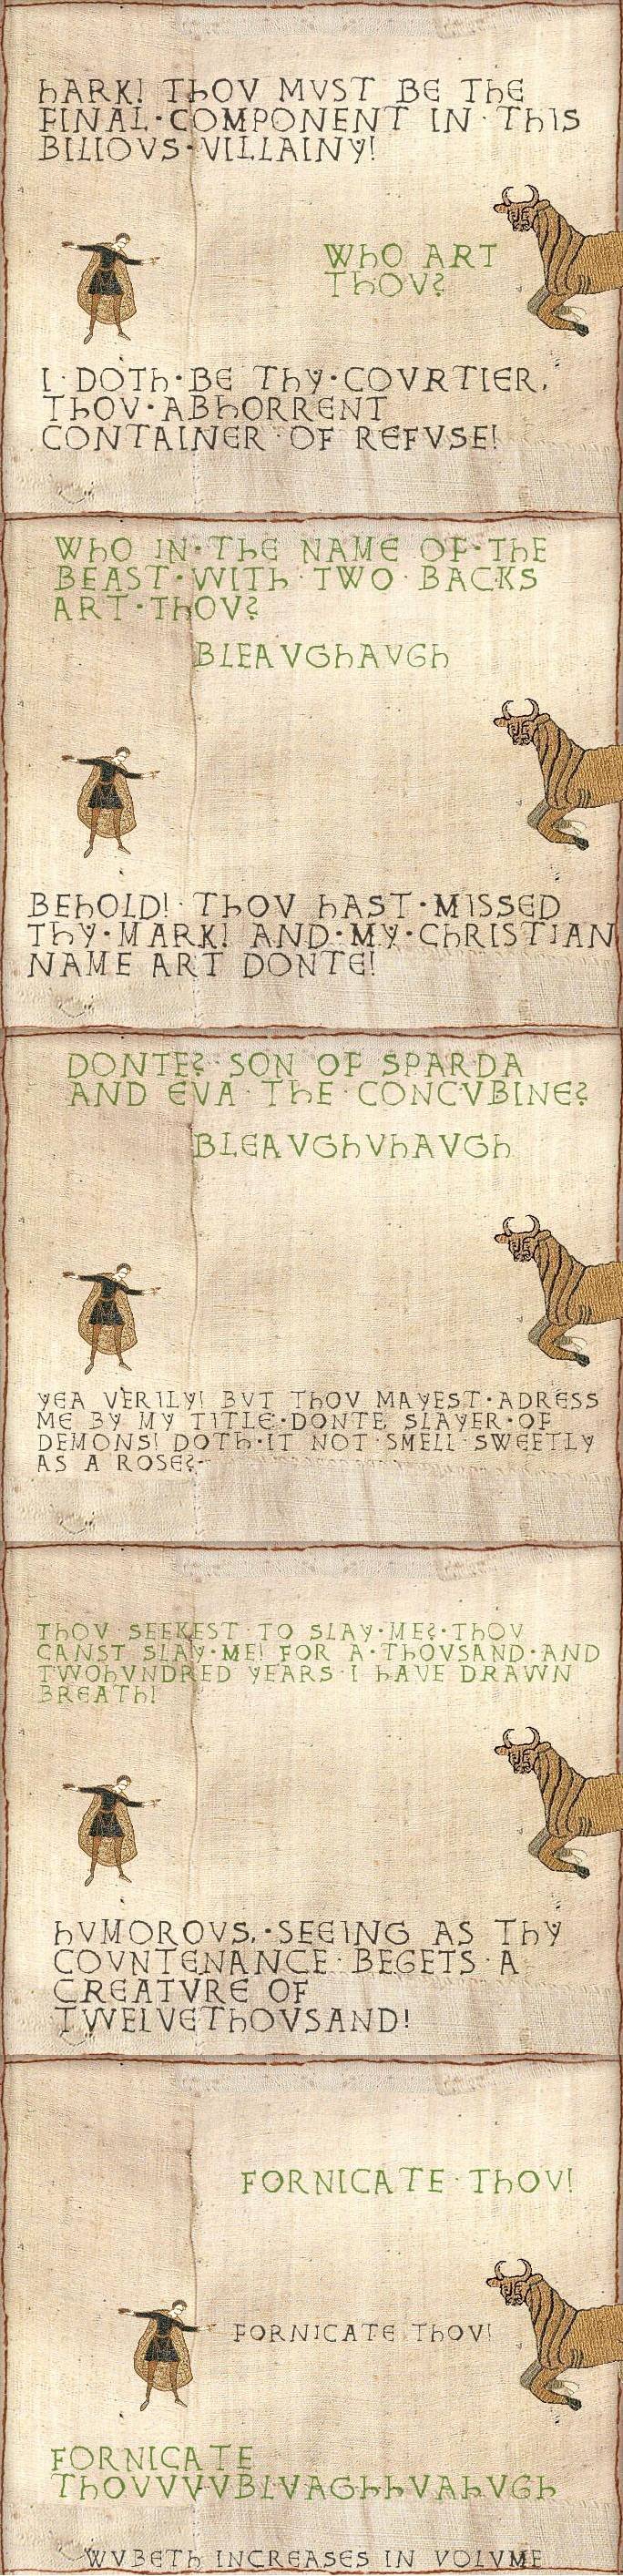 hARK! ThOV MVST BE ThE
FINAL·COMPONENT IN·ThIS
BILIOVS·VILLAINY!
WhO ART
ThOV?
I·DOTh·BE ThY·COVRTIER,
ThOV·ABhORRENT
CONTAINER·OF REFVSE!
WhO IN·ThE NAME OF·ThE
BEAST·WITh·TWO·BACKS
ART·ThOV?
BLEAVGhAVGh
BEhOLD!·ThOV hAST·MISSED
ThY·MARK! AND·MY·ChRISTIAN
NAME ART DONTE!
DONTE?·SON OF SPARDA
AND EVA·ThE·CONCVBINE?
BLEAVGhVhAVGh
YEA VERILY! BVT ThOV MAYEST·ADRESS
ME BY MY TITLE·DONTE SLAYER·OF
DEMONS! DOTh·IT NOT·SMELL·SWEETLY
AS A ROSE?·
ThOV SEEKEST·TO SLAY·ME?·ThOV
CANST SLAY·ME! FOR A·ThOVSAND·AND
TWOhVNDRED YEARS·I hAVE DRAWN
BREATh!
hVMOROVS,·SEEING AS ThY
COVNTENANCE·BEGETS·A
CREATVRE OF
TWELVEThOVSAND!
FORNICATE·ThOV!
FORNICATE ThOV!
FORNICATE
ThOVVVVVBLVAGhhVAhVGh
WVBETh INCREASES IN VOLVME